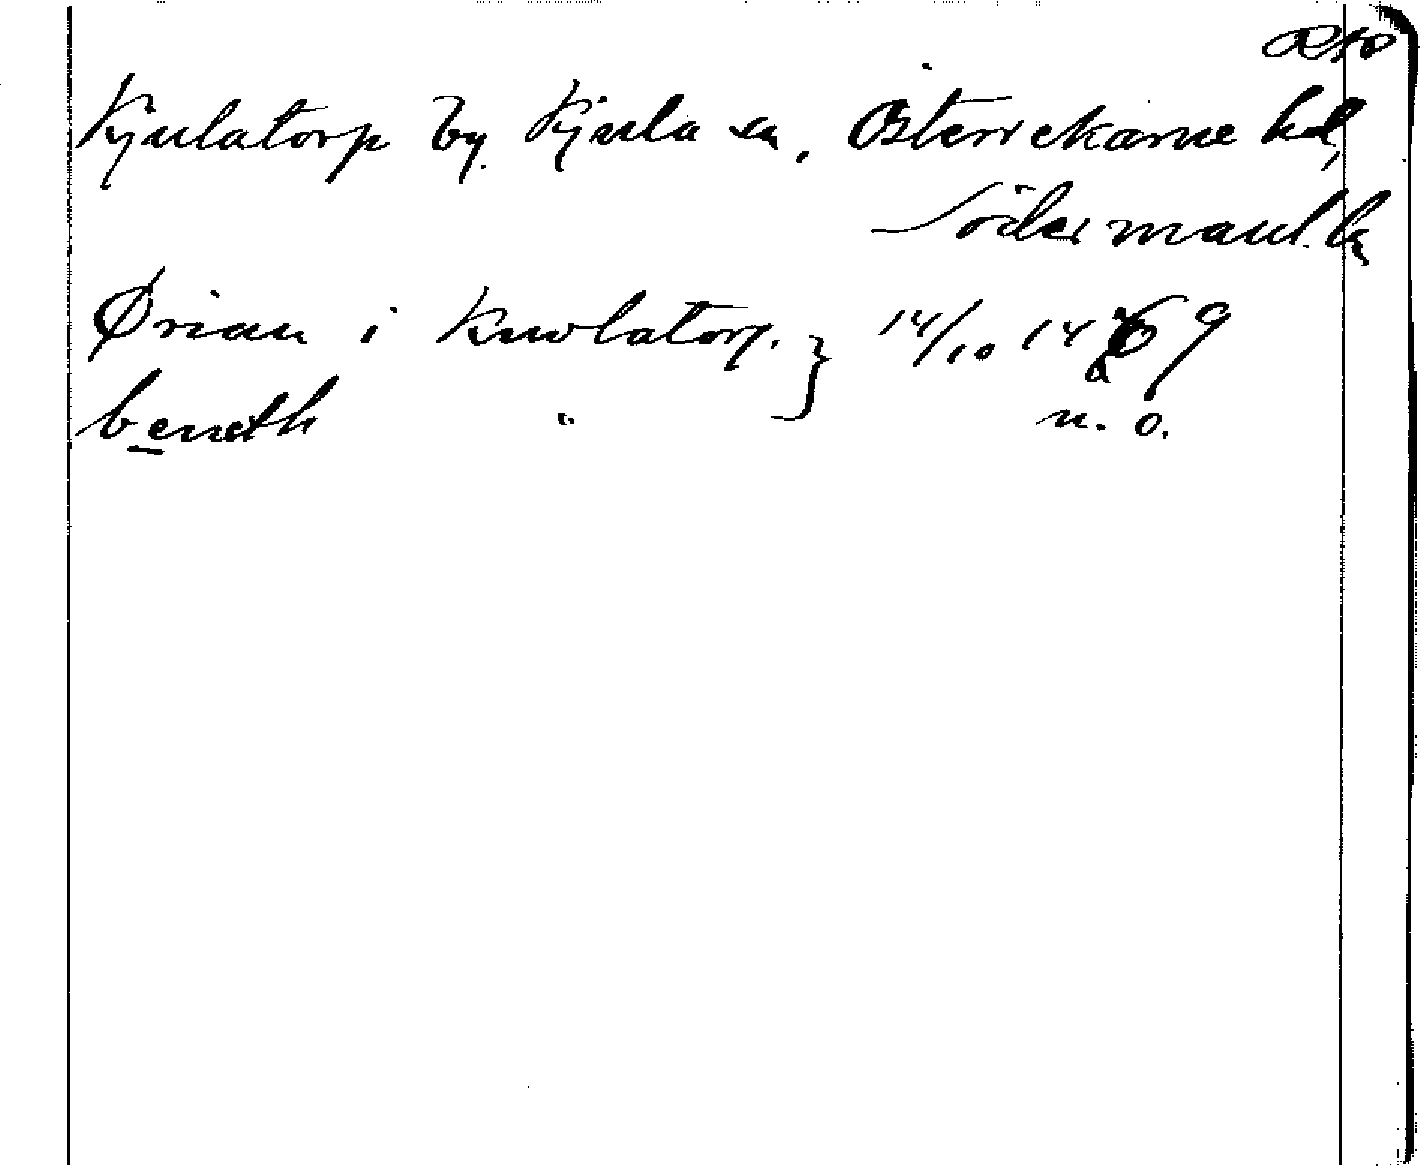 Kjulatorp by. Kjula sn, Österrekarne hd,
Södermanl. ln
Ørian i Knwlatorp. } 14/10 1469
beneth " n. o.